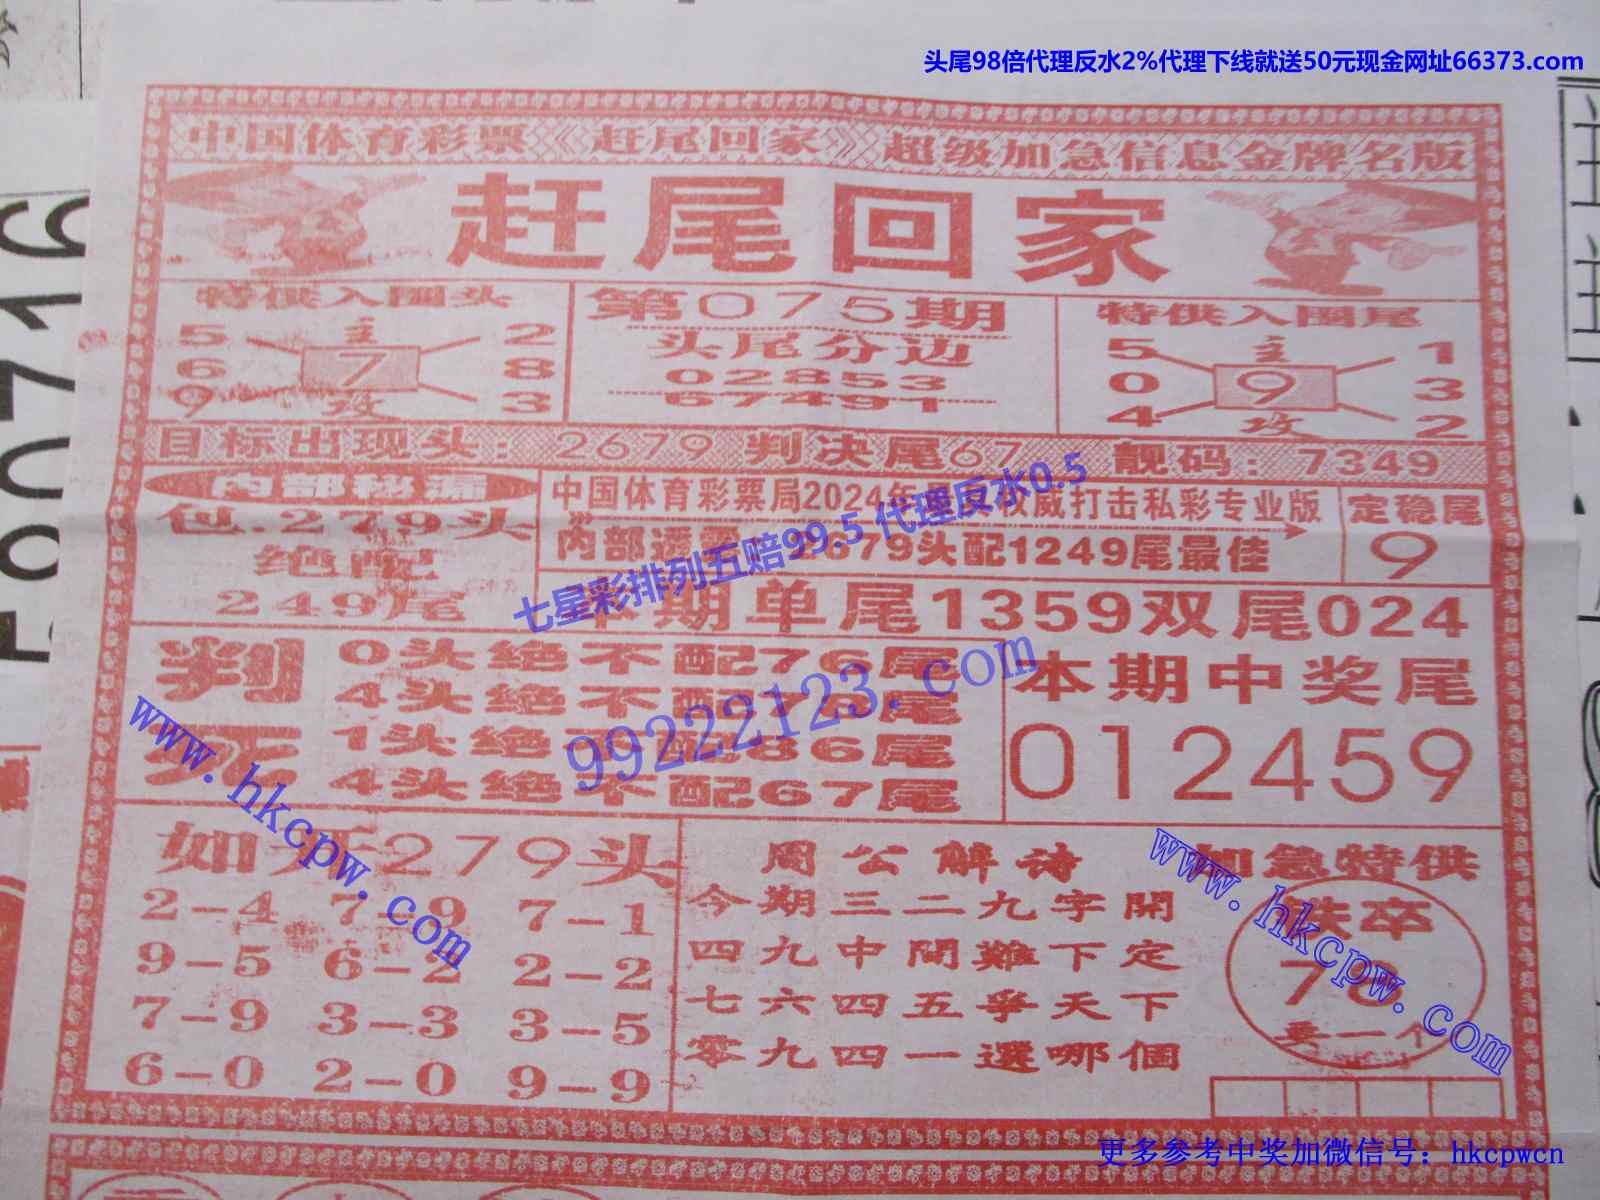 头尾98倍代理反水2%代理下线就送50元现金网址66373.com
中国体育彩票《赶尾回家》超级加急信息金牌名版
赶尾回家
特供入圍头
5 主 2
6 7 8
9 攻 3
第075期
头尾分边
02853
67491
特供入圍尾
5 主 1
0 9 3
4 攻 2
目标出现头：2679 判决尾67 靓码：7349
内部秘漏
包.279头
绝配
249尾
中国体育彩票局2024年 权威打击私彩专业版
内部透 679头配1249尾最佳
定稳尾
9
七星彩排列五赔99.5 代理反水0.5
本期单尾1359双尾024
判死
0头绝不配76尾
4头绝不配78尾
1头绝不配86尾
4头绝不配67尾
99222123.com
本期中奖尾
012459
www.hkcpw.com
如开279头
2-4 7-9 7-1
9-5 6-2 2-2
7-9 3-3 3-5
6-0 2-0 9-9
周公解诗
今期三二九字開
四九中間難下定
七六四五爭天下
零九四一選哪個
加急特供
铁卒
78
卖一个
www.hkcpw.com
更多参考中奖加微信号：hkcpwcn